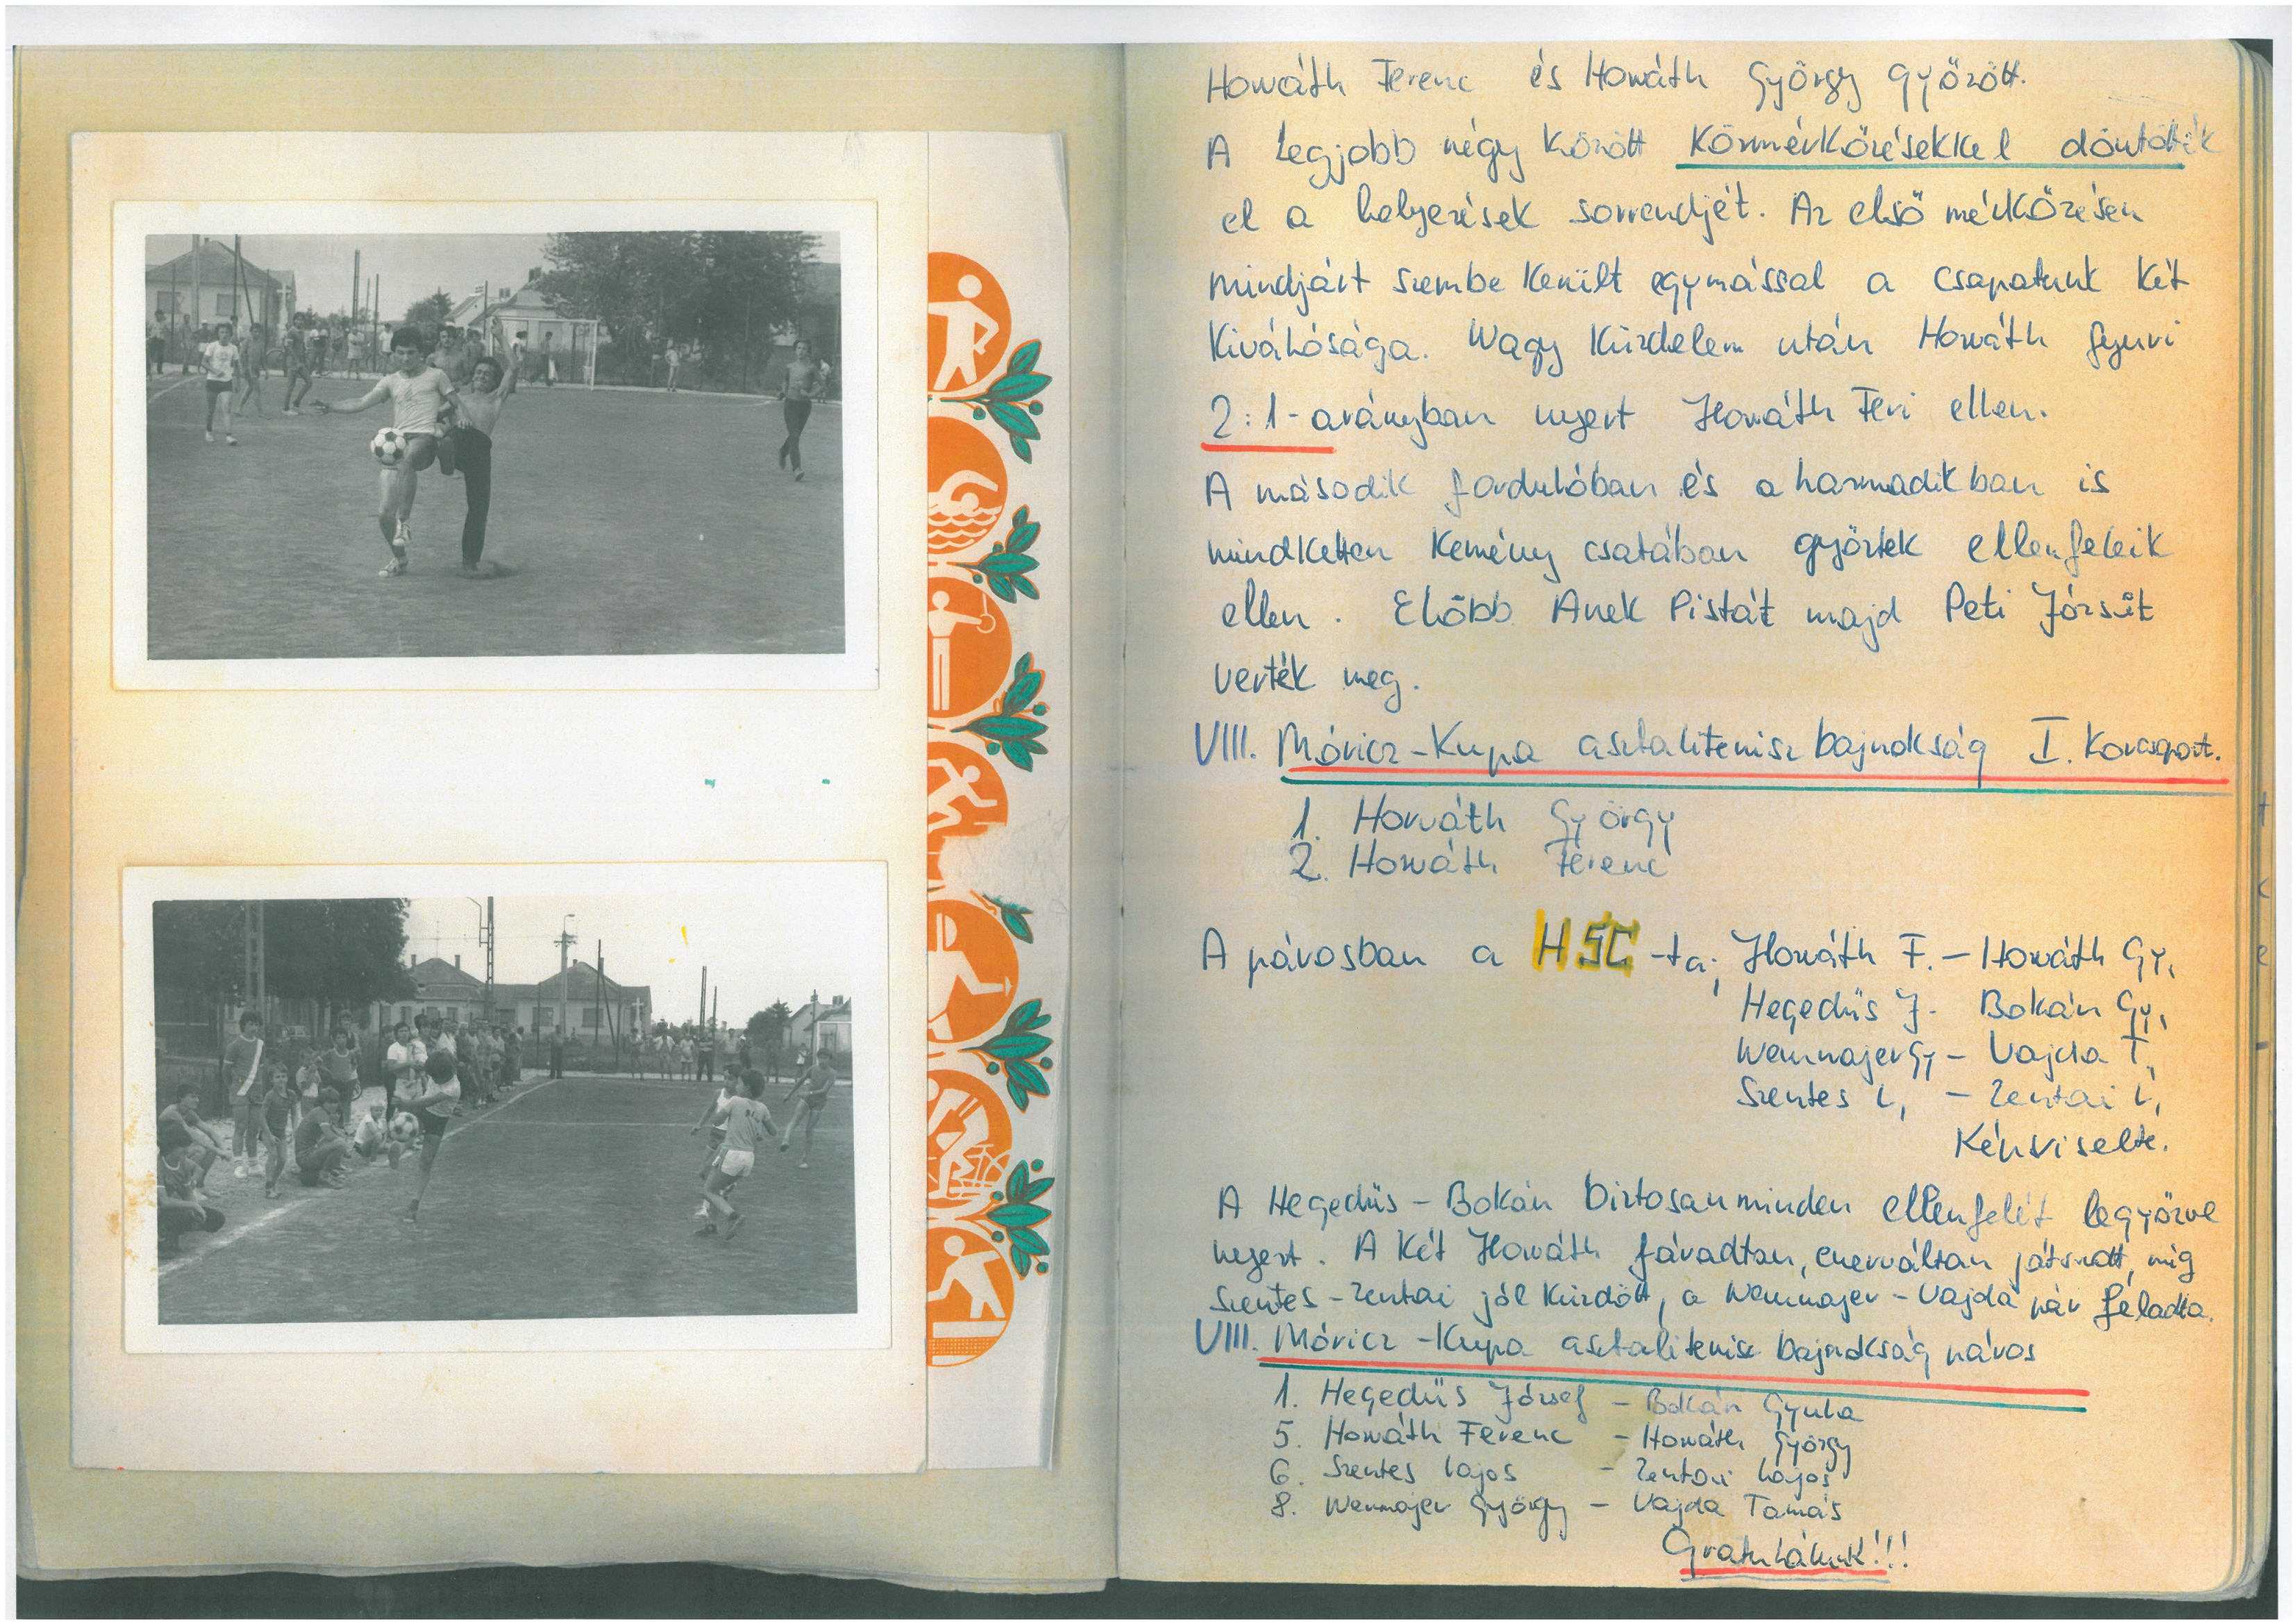 Horváth Ferenc és Horváth György győzött.
A legjobb négy között Körmérkőzésekkel döntötték
el a helyezések sorrendjét. Az első mérkőzésen
mindjárt szembe Került egymással a csapatunk két
Kiválósága. Nagy Küzdelem után Horváth Gyuri
2:1-arányban nyert Horváth Feri ellen.
A második fordulóban és a harmadikban is
mindketten Kemény csatában győztek ellenfeleik
ellen. Előbb Anek Pistát majd Peti Józsit
verték meg.
VIII. Móricz-Kupa asztalitenisz bajnokság I. Korcsoport.
1. Horváth György
2. Horváth Ferenc
A párosban a HSC-ta; Horváth F. - Horváth Gy,
Hegedüs J. Bokán Gy,
Wennajer Gy - Vajda T,
Szentes L, - Zentai L,
Képviselte.
A Hegedüs - Bokán biztosan minden ellenfelét legyőzve
nyert. A Két Horváth fáradtan, enerváltan játszott, míg
Szentes-Zentai jól Küzdött, a Wennajer-Vajda pár feladta.
VIII. Móricz-Kupa asztalitenisz bajnokság páros
1. Hegedüs József - Bokán Gyula
5. Horváth Ferenc - Horváth György
6. Szentes Lajos - Zentai Lajos
8. Wennajer György - Vajda Tamás
Gratulálunk!!!